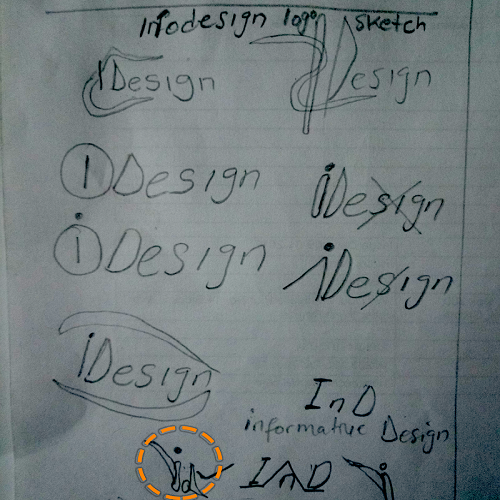 Infodesign logo sketch
IDesign Design
IDesign iDesign
iDesign iDesign
iDesign
InD
informative Design
id InD i